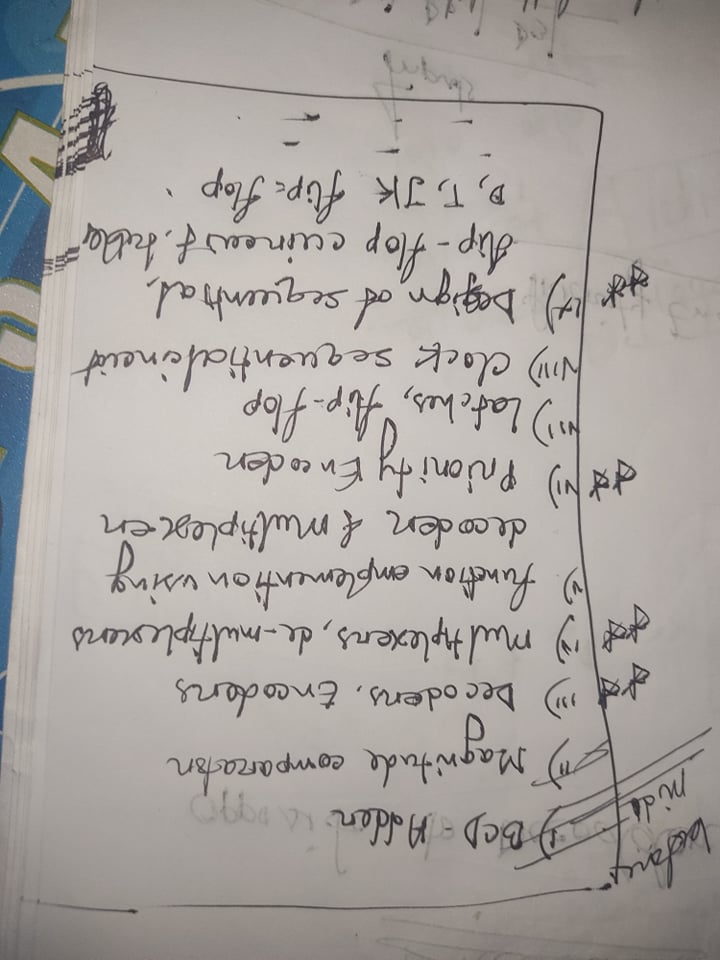 before
mid
i) BCD - Adder
ii) Magnitude comparator
** iii) Decoders, Encoders
** iv) multiplexers, de-multiplexers
v) function emplemention using
decoder & multiplexer
** vi) Priority Encoder
vii) Latches, flip-flop
viii) clock sequential circuit
** ix) Design of sequential,
flip-flop
D, T, JK flip-flop.
inputs